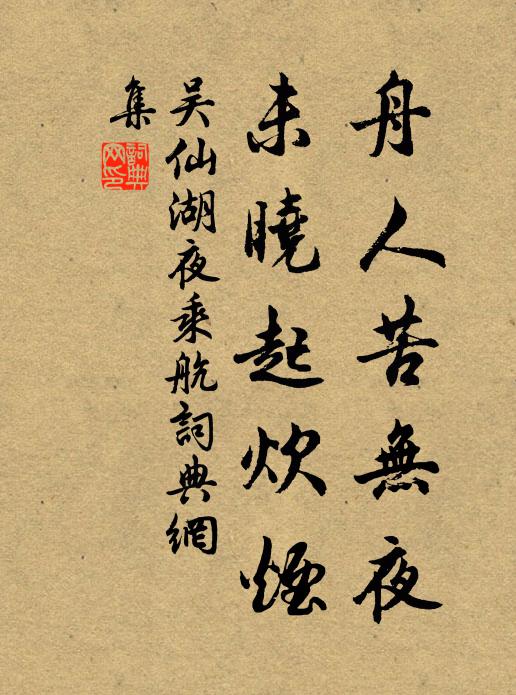 舟人苦無夜
未曉起炊煙
吳仙湖夜乘航詞典網
集
詞典
網印